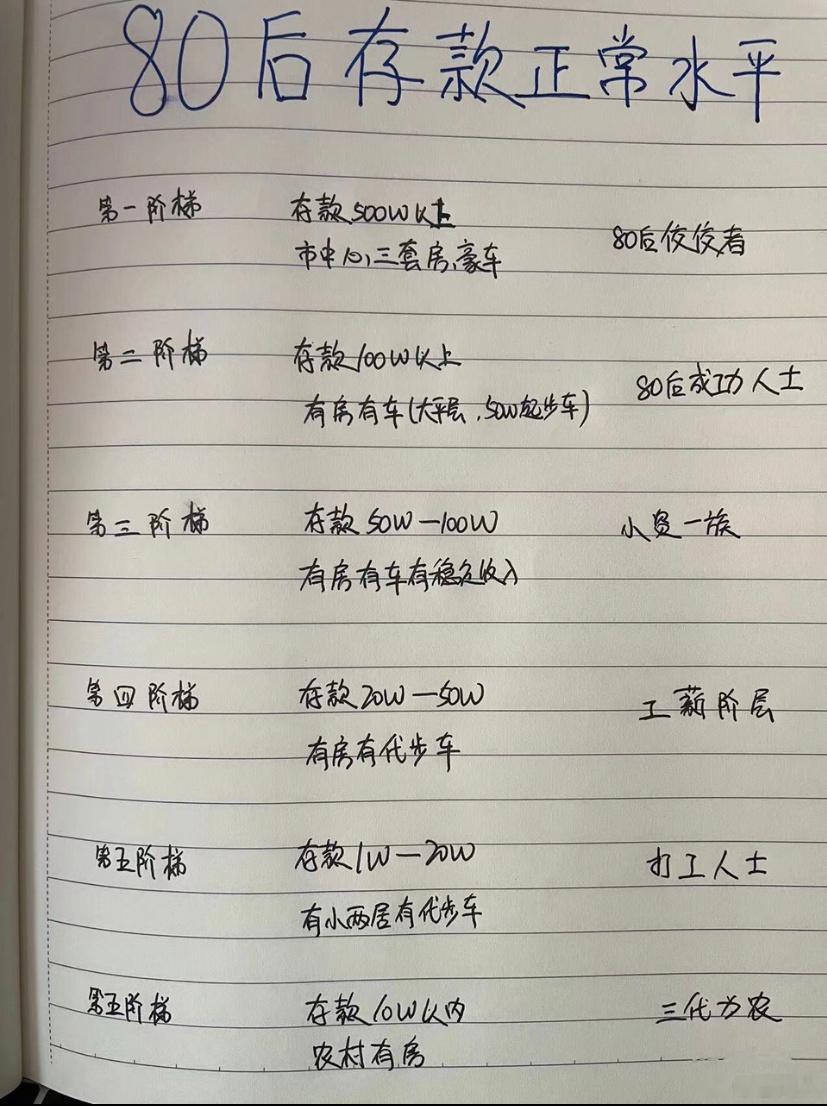 80后存款正常水平
第一阶梯 存款500W以上 80后佼佼者
市中心,三套房,豪车
第二阶梯 存款100W以上 80后成功人士
有房有车(大平层,50W起步车)
第三阶梯 存款50W—100W 小资一族
有房有车有稳定收入
第四阶梯 存款20W—50W 工薪阶层
有房有代步车
第五阶梯 存款1W—20W 打工人士
有小两居有代步车
第五阶梯 存款10W以内 三代为农
农村有房